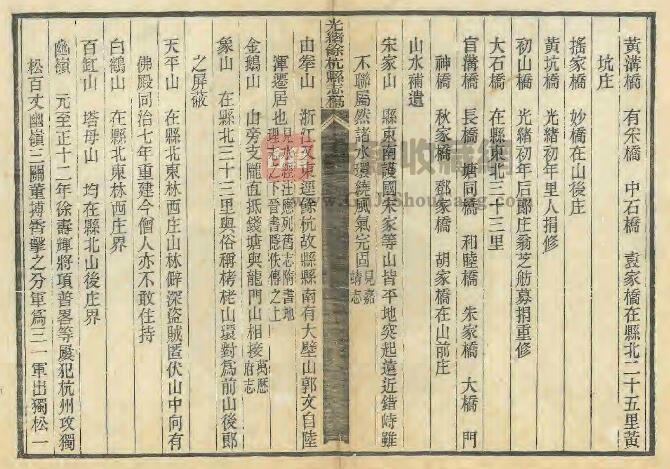 黃溝橋　有米橋　中石橋　袁家橋在縣北二十五里黃
坑庄
搖家橋　妙橋在山後庄
黃坑橋　光緒初年里人捐修
初山橋　光緒初年后郎庄翁芝舫募捐重修
大石橋　在縣東北三十三里
盲溝橋　長橋　塘同橋　和睦橋　朱家橋　大橋　門
神橋　秋家橋　鄧家橋　胡家橋在山前庄
山水補遺
宋家山　縣東南護國朱家等山皆平地突起遠近錯峙雖
不聯屬然諸水環繞風氣完固見嘉請志
光緒餘杭縣志稿
由拳山　浙江又東逕餘杭故縣縣南有大壁山郭文自陸
渾遷居也見水經注應列舊志附書地理志之下晉書隱佚傳之上
金鵝山　山旁支隴直抵錢塘與龍門山相接萬歷府志
象山　在縣北三十三里與俗稱栲栳山環對爲前山後郎
之屏蔽
天平山　在縣北東林西庄山林僻深盜賊匿伏山中向有
佛殿同治七年重建今僧人亦不敢住持
白鶴山　在縣北東林西庄界
百缸山　塔母山　均在縣北山後庄界
幽嶺　元至正十二年徐壽輝將項普畧等屢犯杭州攻獨
松百丈幽嶺三關董搏霄擊之分軍爲三一軍出獨松一